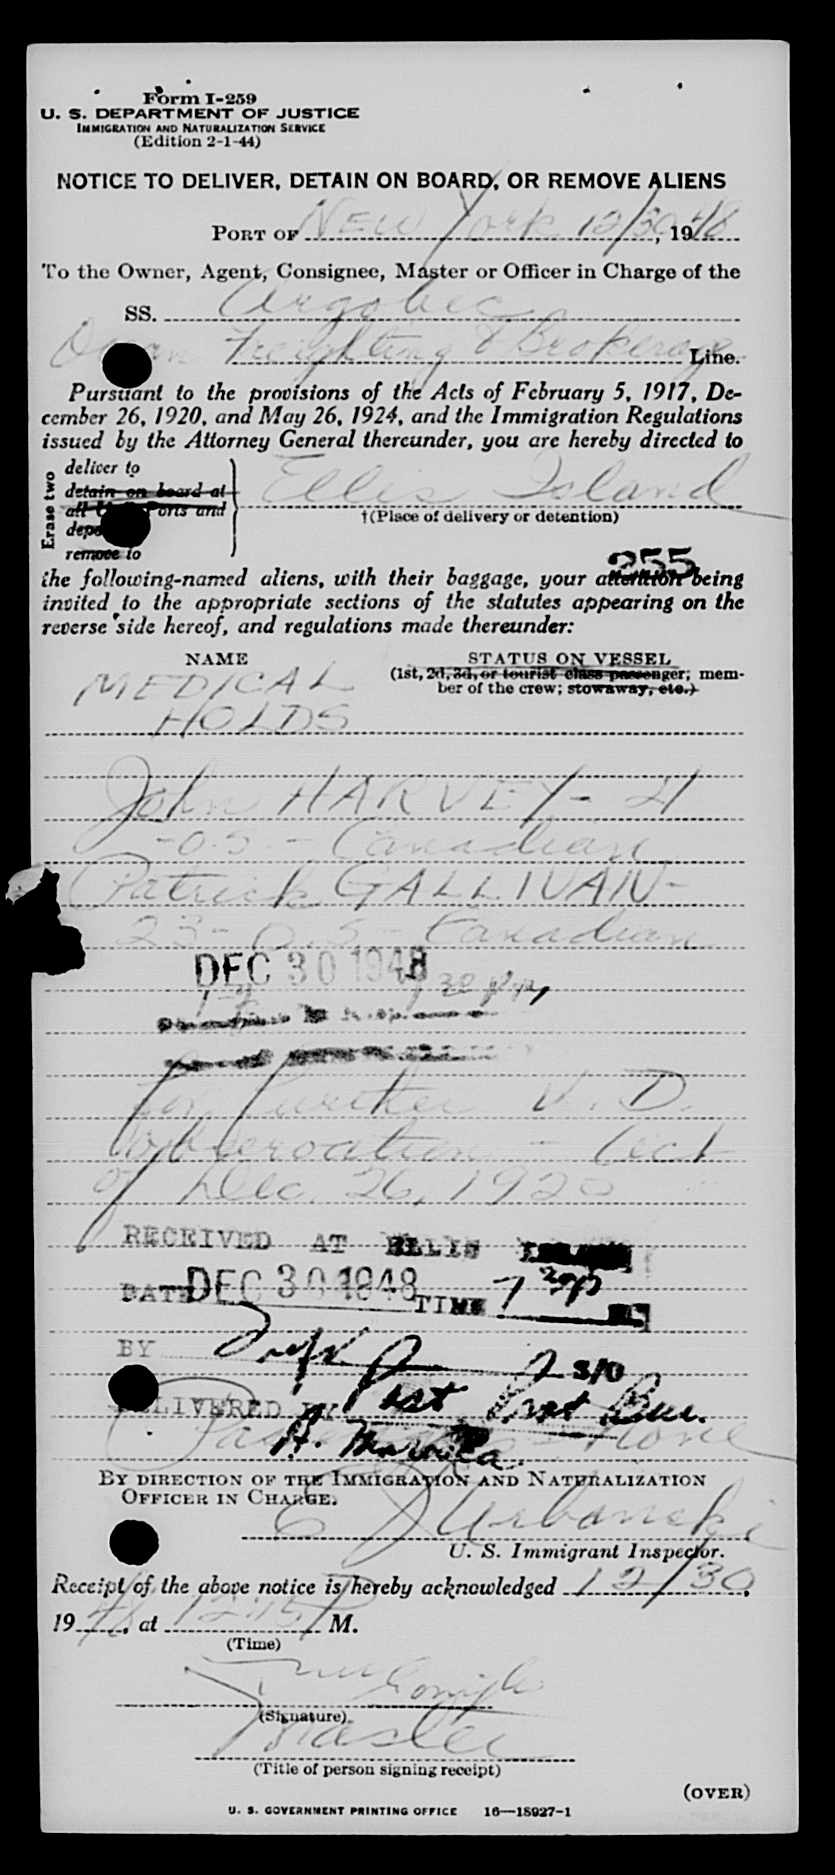 Form I-259
U. S. DEPARTMENT OF JUSTICE
IMMIGRATION AND NATURALIZATION SERVICE
(Edition 2-1-44)
NOTICE TO DELIVER, DETAIN ON BOARD, OR REMOVE ALIENS
PORT OF New York 12/30, 1948
To the Owner, Agent, Consignee, Master or Officer in Charge of the
SS. Argobec
Freighting & Brokerage Line.
Pursuant to the provisions of the Acts of February 5, 1917, De-
cember 26, 1920, and May 26, 1924, and the Immigration Regulations
issued by the Attorney General thereunder, you are hereby directed to
Erase two
deliver to
detain on board at
all U. S. Ports and
remove to
Ellis Island
†(Place of delivery or detention)
255
the following-named aliens, with their baggage, your attention being
invited to the appropriate sections of the statutes appearing on the
reverse side hereof, and regulations made thereunder:
NAME STATUS ON VESSEL
(1st, 2d, 3d, or tourist class passenger; mem-
ber of the crew; stowaway, etc.)
MEDICAL
HOLDS
John HARVEY - 21
- O.S. - Canadian
Patrick GALLIVAN -
23 - O.S. - Canadian
DEC 30 1948
30 pm
for further V. D.
observation - Act
of Dec. 26, 1920
RECEIVED AT ELLIS ISLAND
DATE DEC 30 1948 TIME 7 30p
BY S/O
DELIVERED BY
A.
None
BY DIRECTION OF THE IMMIGRATION AND NATURALIZATION
OFFICER IN CHARGE.
E J Urbanski
U. S. Immigrant Inspector.
Receipt of the above notice is hereby acknowledged 12/30,
1948, at 12:15 P M.
(Time)
(Signature)
Master
(Title of person signing receipt)
(OVER)
U. S. GOVERNMENT PRINTING OFFICE 16—18927-1